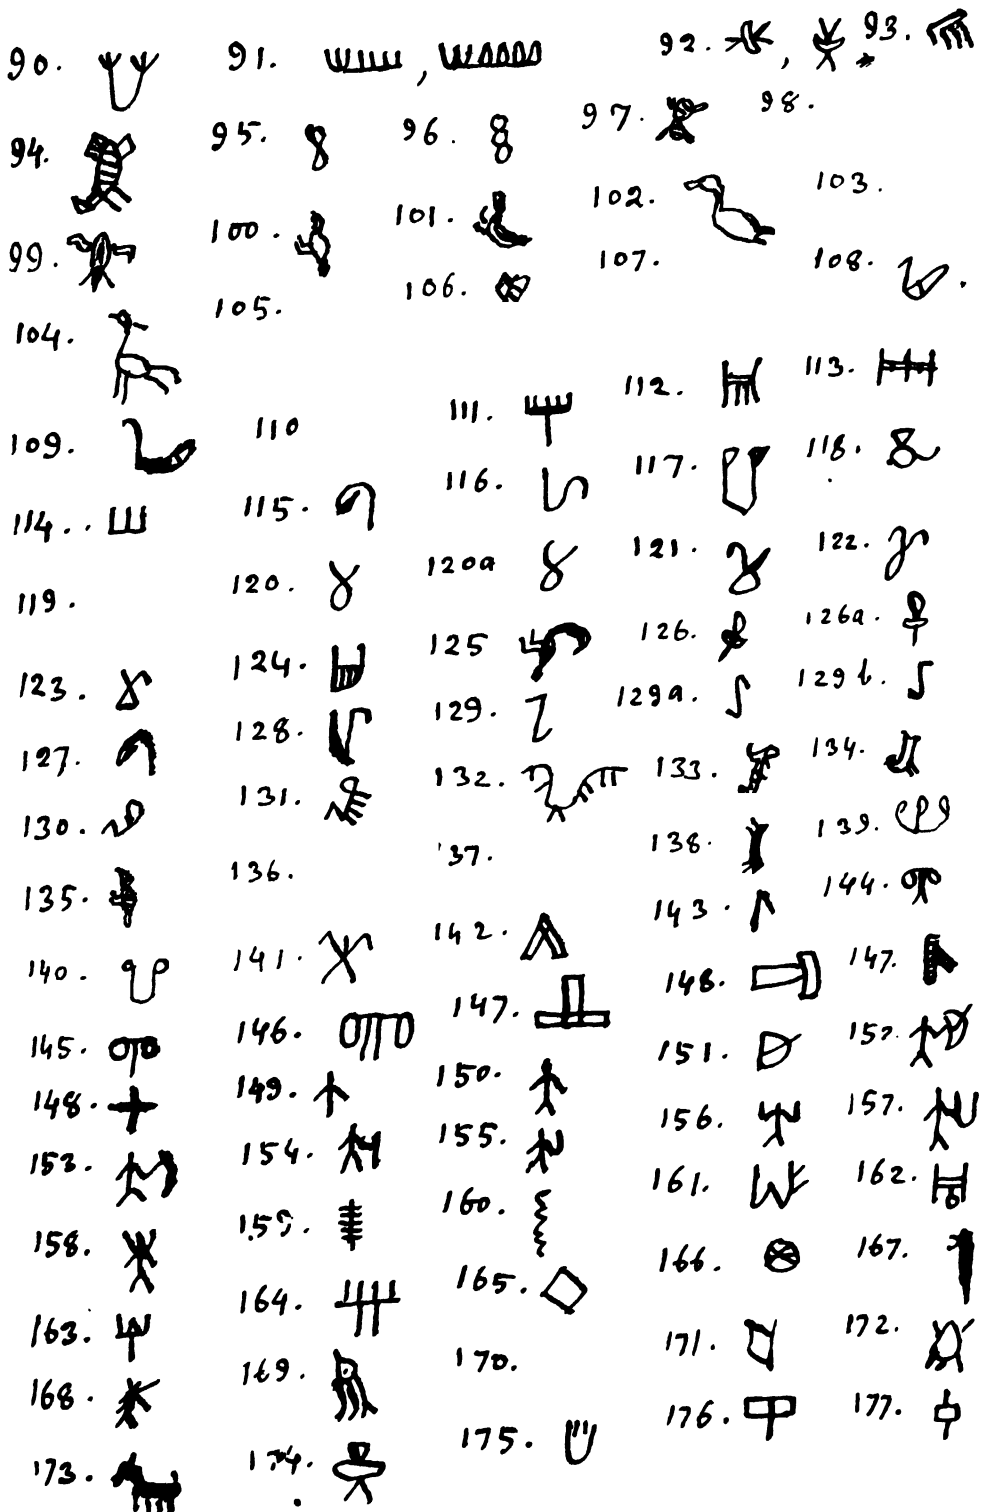 90. 91. , 92. , 93.
94. 95. 96. 97. 98.
99. 100. 101. 102. 103.
104. 105. 106. 107. 108.
109. 110 111. 112. 113.
114. 115. 116. 117. 118.
119. 120. 120a 121. 122.
123. 124. 125 126. 126a.
127. 128. 129. 129a. 129b.
130. 131. 132. 133. 134.
135. 136. 37. 138. 139.
140. 141. 142. 143. 144.
145. 146. 147. 148. 147.
148. 149. 150. 151. 152.
153. 154. 155. 156. 157.
158. 159. 160. 161. 162.
163. 164. 165. 166. 167.
168. 169. 170. 171. 172.
173. 174. 175. 176. 177.